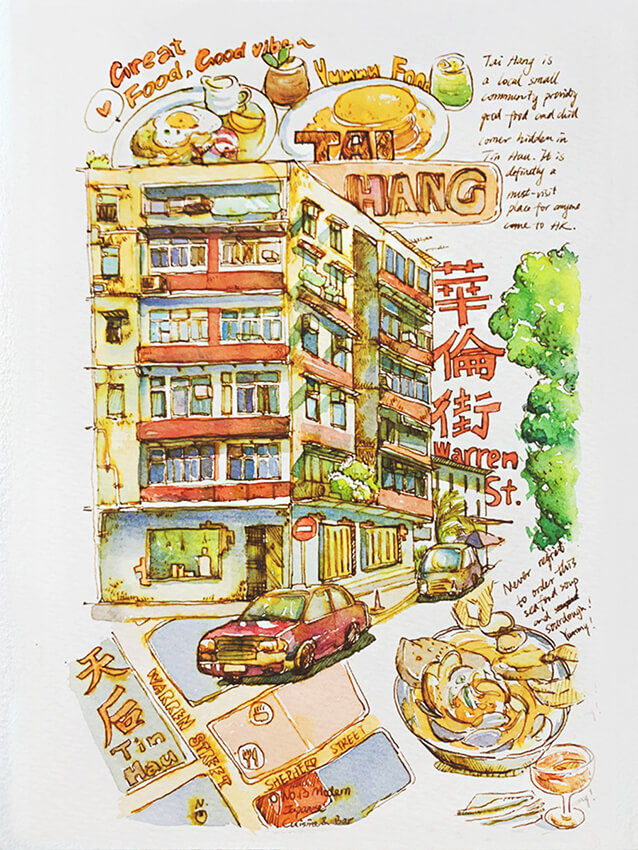 Great
Food, Good vibe~
Yummy Food
TAI
HANG
Tai Hang is
a local small
community providing
good food and child
corner hidden in
Tin Hau. It is
definetly a
must-visit
place for anyone
come to HK.
華倫街
Warren
St.
Never regret
to order this
seafood soup
and
sourdough!
Yummy!
天后
Tin
Hau
WARREN STREET
SHEPHERD STREET
No.13 Modern
Japanese
Cuisine & Bar